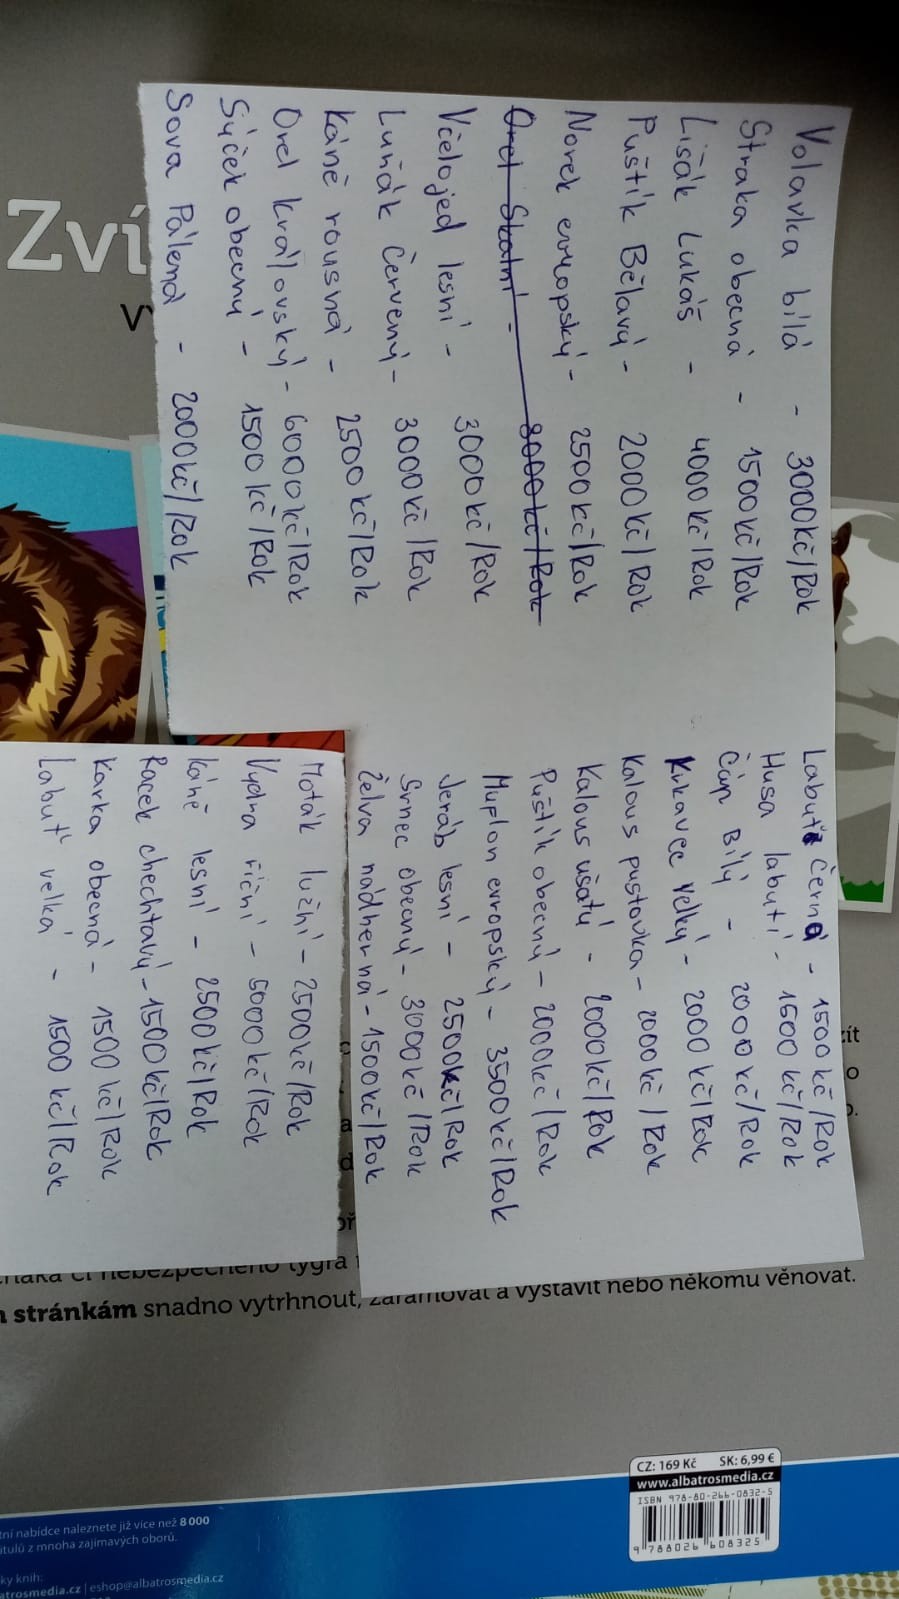 Volavka bílá - 3000kč/Rok
Straka obecná - 1500kč/Rok
Lišák Lukáš - 4000kč/Rok
Puštík Bělavý - 2000kč/Rok
Norek evropský - 2500kč/Rok
Orel Skalní - 8000kč/Rok
Včelojed lesní - 3000kč/Rok
Luňák červený - 3000kč/Rok
Káně rousná - 2500kč/Rok
Orel královský - 6000kč/Rok
Sýček obecný - 1500kč/Rok
Sova Pálená - 2000kč/Rok
Labuť černá - 1500kč/Rok
Husa labutí - 1500kč/Rok
Čáp Bílý - 2000kč/Rok
Krkavec velký - 2000kč/Rok
Kalous pustovka - 2000kč/Rok
Kalous ušatý - 2000kč/Rok
Puštík obecný - 2000kč/Rok
Muflon evropský - 3500kč/Rok
Jeráb lesní - 2500kč/Rok
Srnec obecný - 3000kč/Rok
Želva nádherná - 1500kč/Rok
Moták lužní - 2500kč/Rok
Vydra říční - 5000kč/Rok
Káně lesní - 2500kč/Rok
Racek chechtavý - 1500kč/Rok
Kavka obecná - 1500kč/Rok
Labuť velká - 1500kč/Rok
Zví
tygra
stránkám snadno vytrhnout, zarámovat a vystavit nebo někomu věnovat.
CZ: 169 Kč SK: 6,99 €
www.albatrosmedia.cz
ISBN 978-80-266-0832-5
9 788026 608325
tní nabídce naleznete již více než 8 000
titulů z mnoha zajímavých oborů.
ky knih:
atrosmedia.cz | eshop@albatrosmedia.cz